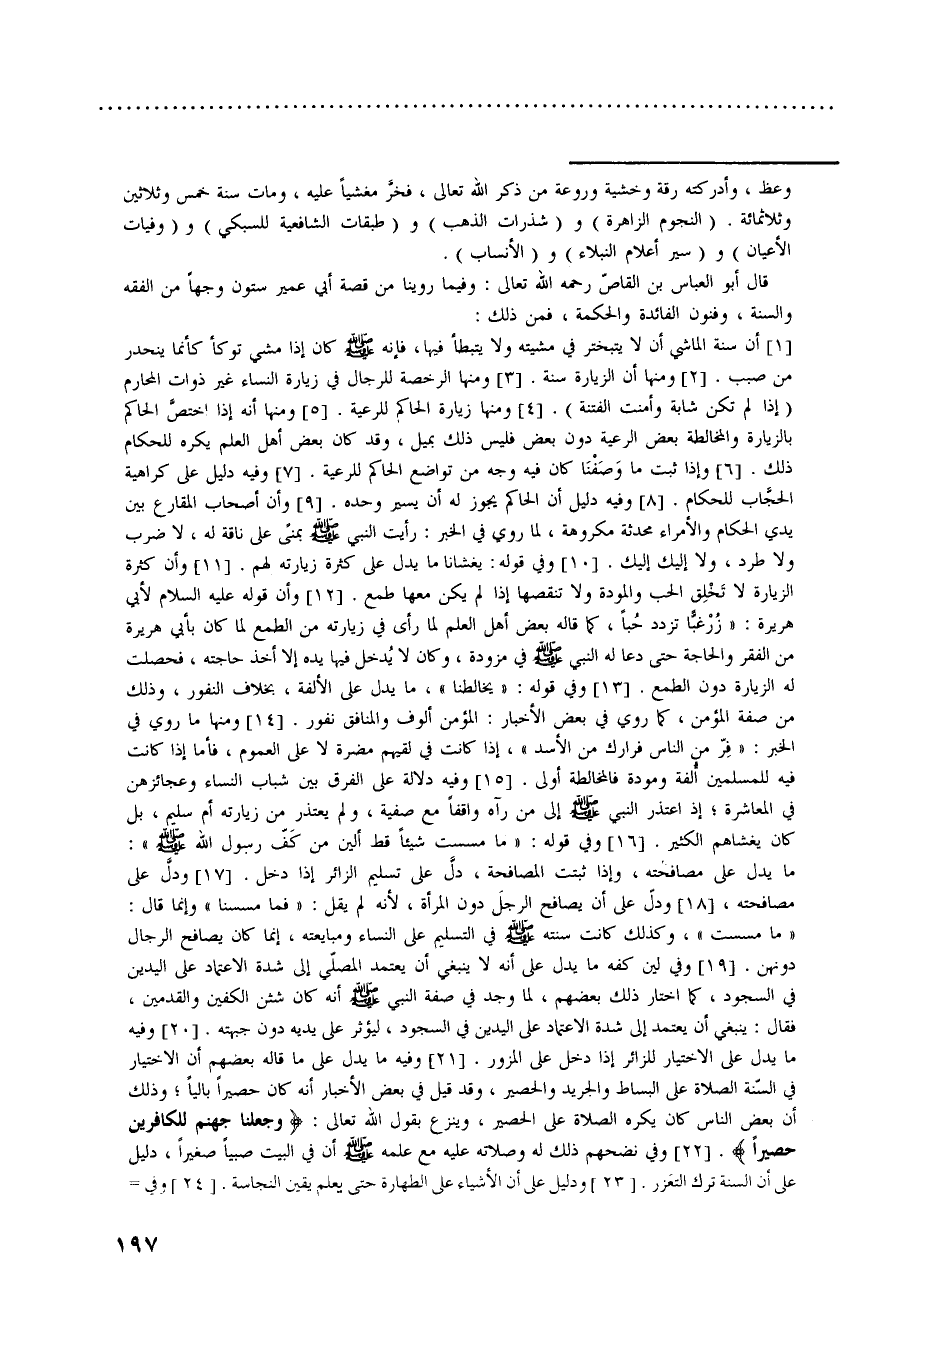 وعظ ، وأدركته رقة وخشية وروعة من ذكر الله تعالى ، فخرَّ مغشياً عليه ، ومات سنة خمس وثلاثين
وثلاثمائة . ( النجوم الزاهرة ) و ( شذرات الذهب ) و ( طبقات الشافعية للسبكي ) و ( وفيات
الأعيان ) و ( سير أعلام النبلاء ) و ( الأنساب ) .
قال أبو العباس بن القاصّ رحمه الله تعالى : وفيما روينا من قصة أبي عمير ستون وجهاً من الفقه
والسنة ، وفنون الفائدة والحكمة ، فمن ذلك :
[١] أن سنة الماشي أن لا يتبختر في مشيته ولا يتبطأ فيها، فإنه ﷺ كان إذا مشي توكأ كأنما ينحدر
من صبب . [٢] ومنها أن الزيارة سنة . [٣] ومنها الرخصة للرجال في زيارة النساء غير ذوات المحارم
( إذا لم تكن شابة وأمنت الفتنة ) . [٤] ومنها زيارة الحاكم للرعية . [٥] ومنها أنه إذا اختصَّ الحاكم
بالزيارة والمخالطة بعض الرعية دون بعض فليس ذلك بميل ، وقد كان بعض أهل العلم يكره للحكام
ذلك . [٦] وإذا ثبت ما وَصَفْنَا كان فيه وجه من تواضع الحاكم للرعية . [٧] وفيه دليل على كراهية
الحجَّاب للحكام . [٨] وفيه دليل أن الحاكم يجوز له أن يسير وحده . [٩] وأن أصحاب المقارع بين
يدي الحكام والأمراء محدثة مكروهة ، لما روي في الخبر : رأيت النبي ﷺ بمنىً على ناقة له ، لا ضرب
ولا طرد ، ولا إليك إليك . [١٠] وفي قوله: يغشانا ما يدل على كثرة زيارته لهم . [١١] وأن كثرة
الزيارة لا تَخْلِق الحب والمودة ولا تنقصها إذا لم يكن معها طمع . [١٢] وأن قوله عليه السلام لأبي
هريرة : « زُرْغبًّا تزدد حُباً ، كما قاله بعض أهل العلم لما رأى في زيارته من الطمع لما كان بأبي هريرة
من الفقر والحاجة حتى دعا له النبي ﷺ في مزودة ، وكان لا يُدخل فيها يده إلا أخذ حاجته ، فحصلت
له الزيارة دون الطمع . [١٣] وفي قوله : « يخالطنا » ، ما يدل على الألفة ، بخلاف النفور ، وذلك
من صفة المؤمن ، كما روي في بعض الأخبار : المؤمن ألوف والمنافق نفور . [١٤] ومنها ما روي في
الخبر : « فِرّ من الناس فرارك من الأسد » ، إذا كانت في لقيهم مضرة لا على العموم ، فأما إذا كانت
فيه للمسلمين ألفة ومودة فالمخالطة أولى . [١٥] وفيه دلالة على الفرق بين شباب النساء وعجائزهن
في المعاشرة ؛ إذ اعتذر النبي ﷺ إلى من رآه واقفاً مع صفية ، ولم يعتذر من زيارته أم سليم ، بل
كان يغشاهم الكثير . [١٦] وفي قوله : « ما مسست شيئاً قط ألين من كَفّ رسول الله ﷺ » :
ما يدل على مصافحته ، وإذا ثبتت المصافحة ، دلَّ على تسليم الزائر إذا دخل . [١٧] ودلَّ على
مصافحته ، [١٨] ودلّ على أن يصافح الرجلَ دون المرأة ، لأنه لم يقل : « فما مسسنا » وإنما قال :
« ما مسست » ، وكذلك كانت سنته ﷺ في التسليم على النساء ومبايعته ، إنما كان يصافح الرجال
دونهن . [١٩] وفي لين كفه ما يدل على أنه لا ينبغي أن يعتمد المصلّي إلى شدة الاعتماد على اليدين
في السجود ، كما اختار ذلك بعضهم ، لما وجد في صفة النبي ﷺ أنه كان شثن الكفين والقدمين ،
فقال : ينبغي أن يعتمد إلى شدة الاعتماد على اليدين في السجود ، ليؤثر على يديه دون جبهته . [٢٠] وفيه
ما يدل على الاختيار للزائر إذا دخل على المزور . [٢١] وفيه ما يدل على ما قاله بعضهم أن الاختيار
في السّنة الصلاة على البساط والجريد والحصير ، وقد قيل في بعض الأخبار أنه كان حصيراً بالياً ؛ وذلك
أن بعض الناس كان يكره الصلاة على الحصير ، وينزع بقول الله تعالى : ﴿ وجعلنا جهنم للكافرين
حصيراً ﴾ . [٢٢] وفي نضحهم ذلك له وصلاته عليه مع علمه ﷺ أن في البيت صبياً صغيراً ، دليل
على أن السنة ترك التعَزر . [ ٢٣ ] ودليل على أن الأشياء على الطهارة حتى يعلم يقين النجاسة . [ ٢٤ ] وفي =
١٩٧